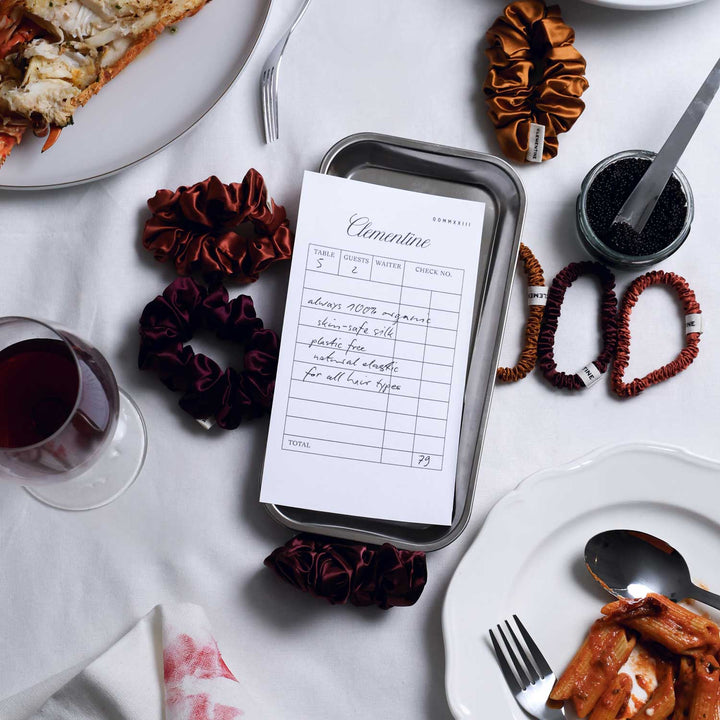 DDMMXXIII
Clementine
TABLE GUESTS WAITER CHECK NO.
5 2
always 100% organic
skin-safe silk
plastic free
natural elastic
for all hair types
TOTAL
79